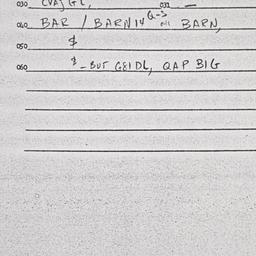 030 033 —
040 BAR / BARN14 Q-3 NI BARN,
050 $
060 $ - BUT G&IDL, QAP BIG